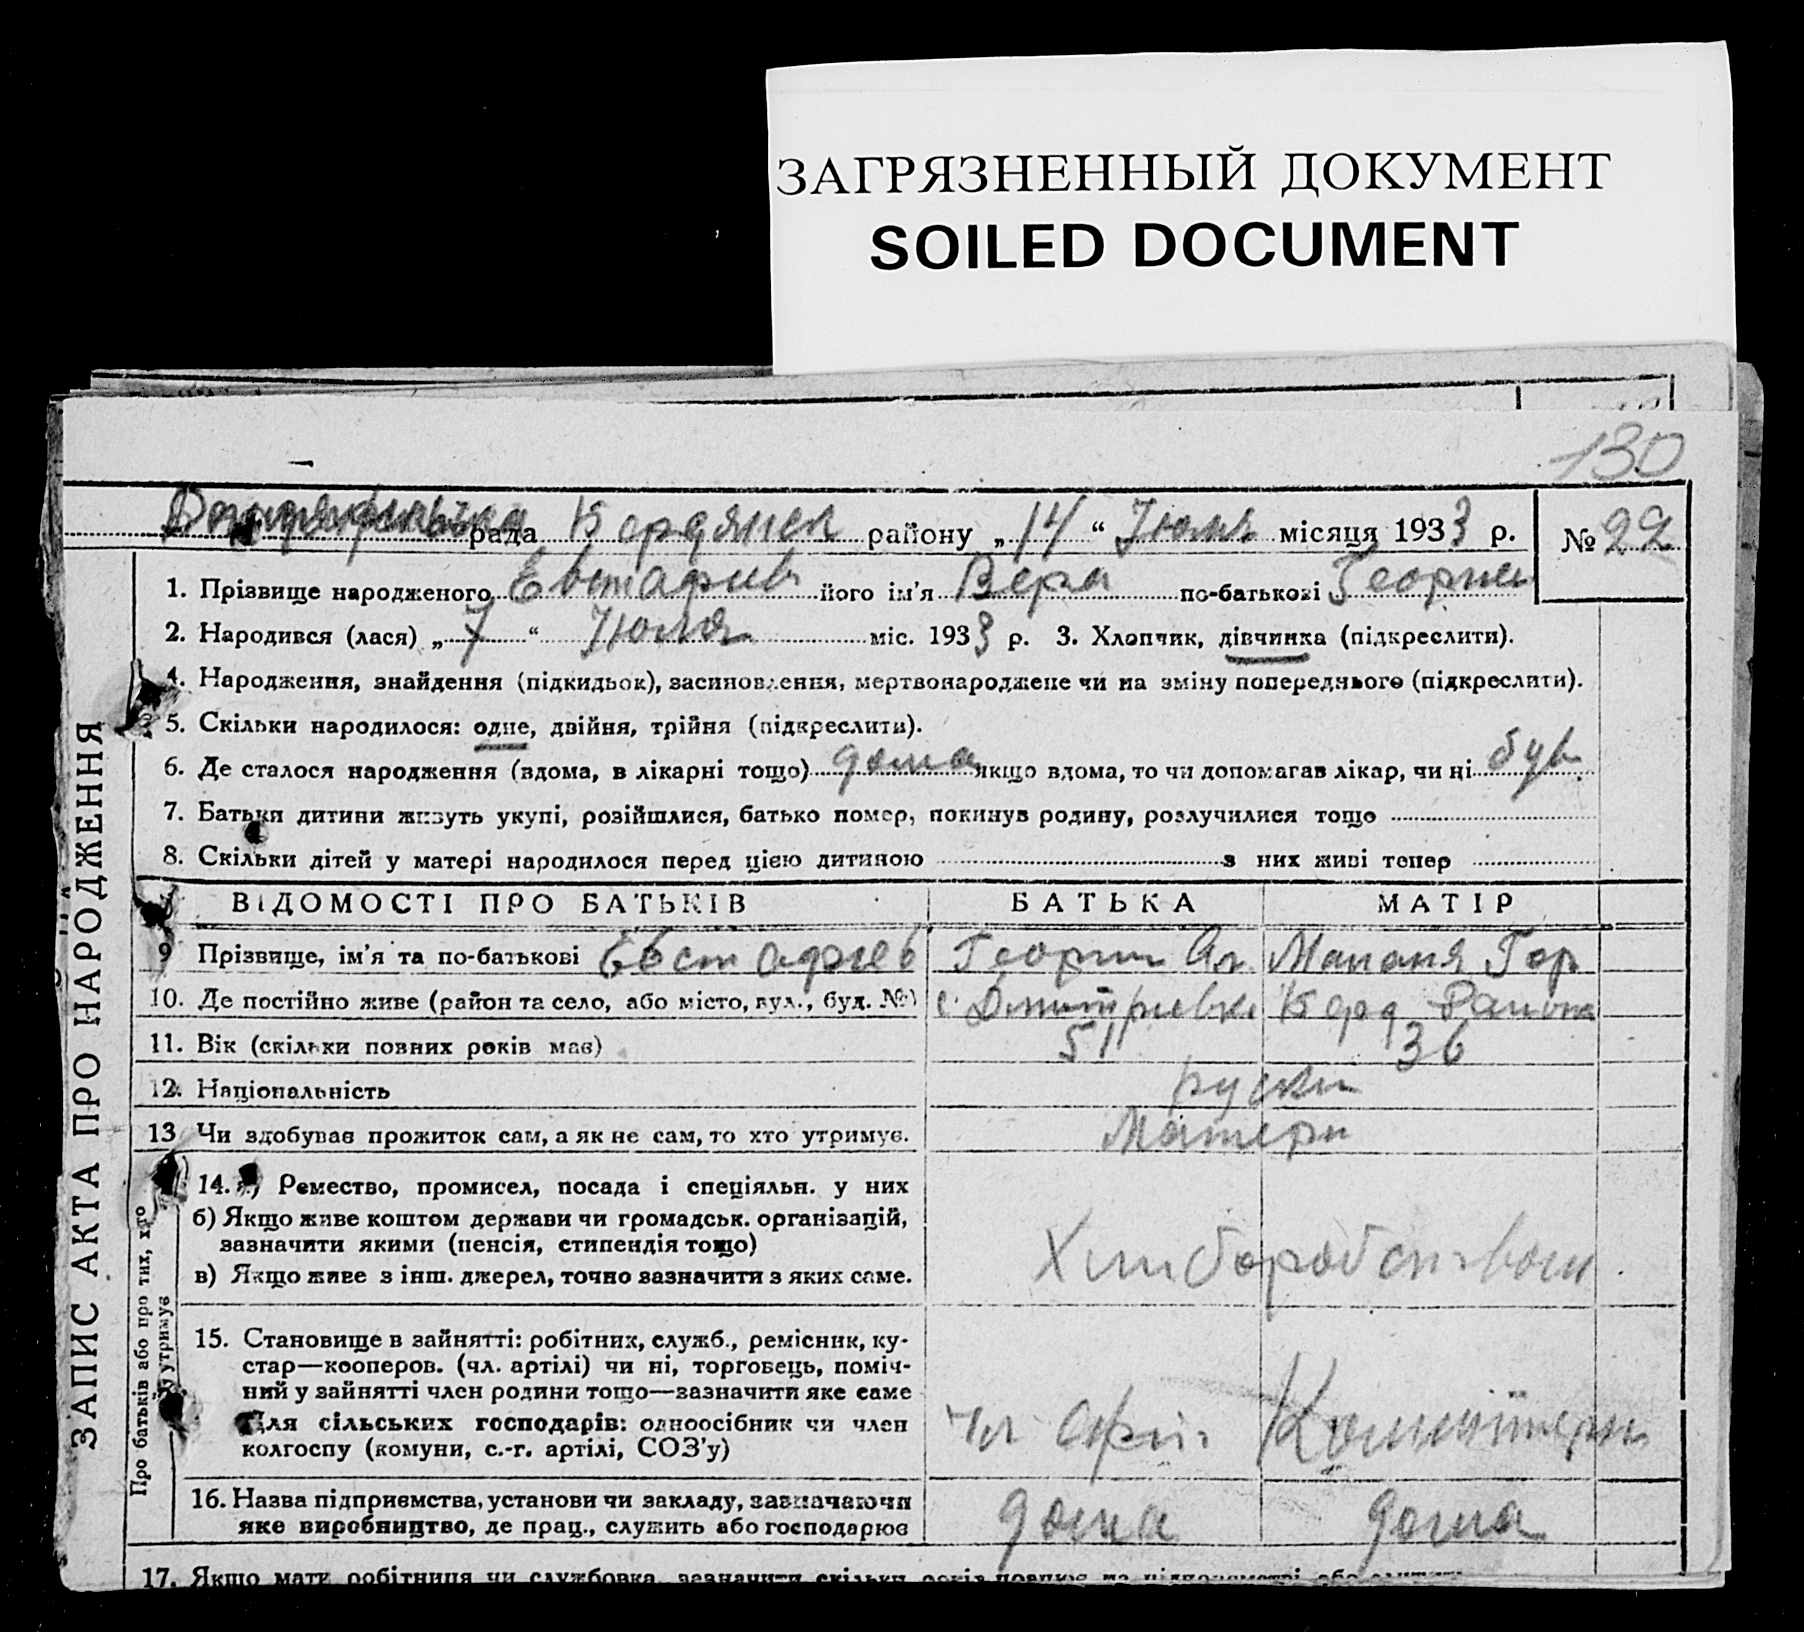 ЗАГРЯЗНЕННЫЙ ДОКУМЕНТ
SOILED DOCUMENT
130
рада Бердянск району „14“ Июля місяця 1933 р. № 22
1. Прізвище народженого Евстафиев його ім'я Вера по-батькові Георгиев
2. Народився (лася) „7“ Июля міс. 1933 р. 3. Хлопчик, дівчинка (підкреслити).
4. Народження, знайдення (підкидьок), засиновлення, мертвонароджене чи на зміну попереднього (підкреслити).
5. Скільки народилося: одне, двійня, трійня (підкреслити).
6. Де сталося народження (вдома, в лікарні тощо) дома якщо вдома, то чи допомагав лікар, чи ні був
7. Батьки дитини живуть укупі, розійшлися, батько помер, покинув родину, розлучилися тощо
8. Скільки дітей у матері народилося перед цією дитиною з них живі тепер
ЗАПИС АКТА ПРО НАРОДЖЕННЯ
ВІДОМОСТІ ПРО БАТЬКІВ БАТЬКА МАТІР
9 Прізвище, ім'я та по-батькові Евстафиев Георги Ал. Мапаня Гор
10. Де постійно живе (район та село, або місто, вул., буд. №) с. Дмитриевка Берд Район
11. Вік (скільки повних років має) 51 36
12. Національність руски
13 Чи здобуває прожиток сам, а як не сам, то хто утримує. Матери
Про батьків або про тих, хто утримує
14. а) Ремество, промисел, посада і спеціяльн. у них
б) Якщо живе коштом держави чи громадськ. організацій,
зазначити якими (пенсія, стипендія тощо)
в) Якщо живе з інш. джерел, точно зазначити з яких саме.
15. Становище в зайнятті: робітник, служб., ремісник, ку-
стар—кооперов. (чл. артілі) чи ні, торговець, поміч-
ний у зайнятті член родини тощо—зазначити яке саме
Для сільських господарів: одноосібник чи член
колгоспу (комуни, с.-г. артілі, СОЗ'у)
чл арт. Коминтерн
16. Назва підприємства, установи чи закладу, зазначаючи
яке виробництво, де прац., служить або господарює
дома дома
17. Якщо мати робітниця чи службовка, зазначити скільки років